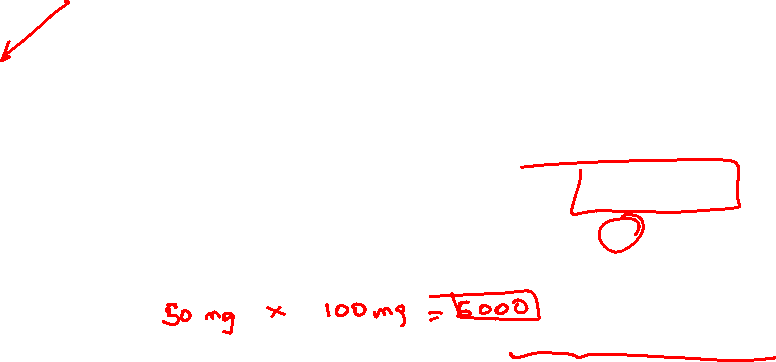 50 mg × 100 mg = 5000